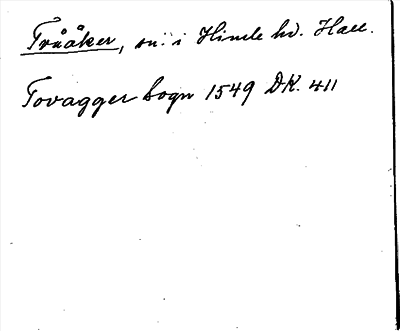 Tvååker, sn. i Himle hd. Hall.
Tovagger sogn 1549 DK. 411